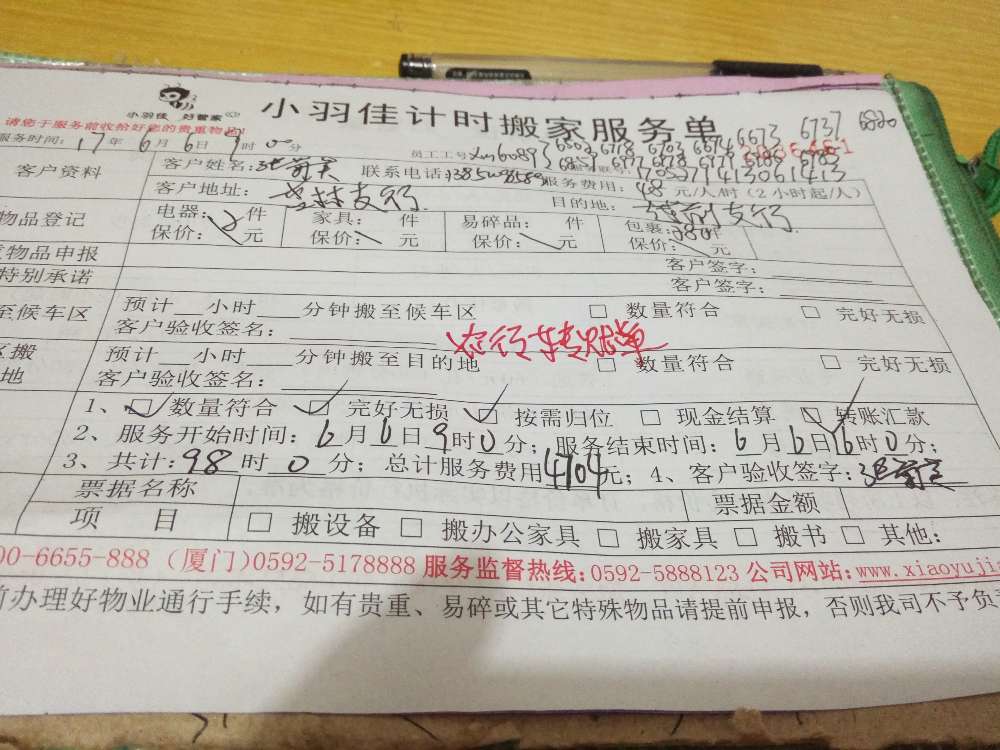 小羽佳 好管家
小羽佳计时搬家服务单
请您于服务前收拾好您的贵重物品!
服务时间: 17年6月6日9时00分
员工工号
6673 6737 6820
客户资料
客户姓名:
联系电话:
服务费用: 48元/人/时(2小时起/人)
客户地址:
支行
目的地:
支行
物品登记
电器: 2件 家具: 件 易碎品: 件 包裹: 件
保价: 元 保价: 元 保价: 元 保价: 元
物品申报
客户签字:
特别承诺
客户签字:
至候车区
预计 小时 分钟搬至候车区 □ 数量符合 □ 完好无损
客户验收签名:
农行转账单
区搬
地
预计 小时 分钟搬至目的地 □ 数量符合 □ 完好无损
客户验收签名:
1、☑ 数量符合 ☑ 完好无损 ☑ 按需归位 □ 现金结算 ☑ 转账汇款
2、服务开始时间: 6月6日9时0分; 服务结束时间: 6月6日16时0分;
3、共计: 98时0分; 总计服务费用4704元; 4、客户验收签字:
票据名称 票据金额
项 目 □ 搬设备 □ 搬办公家具 □ 搬家具 □ 搬书 □ 其他:
00-6655-888 (厦门)0592-5178888 服务监督热线:0592-5888123 公司网站:www.xiaoyujia
前办理好物业通行手续,如有贵重、易碎或其它特殊物品请提前申报,否则我司不予负责